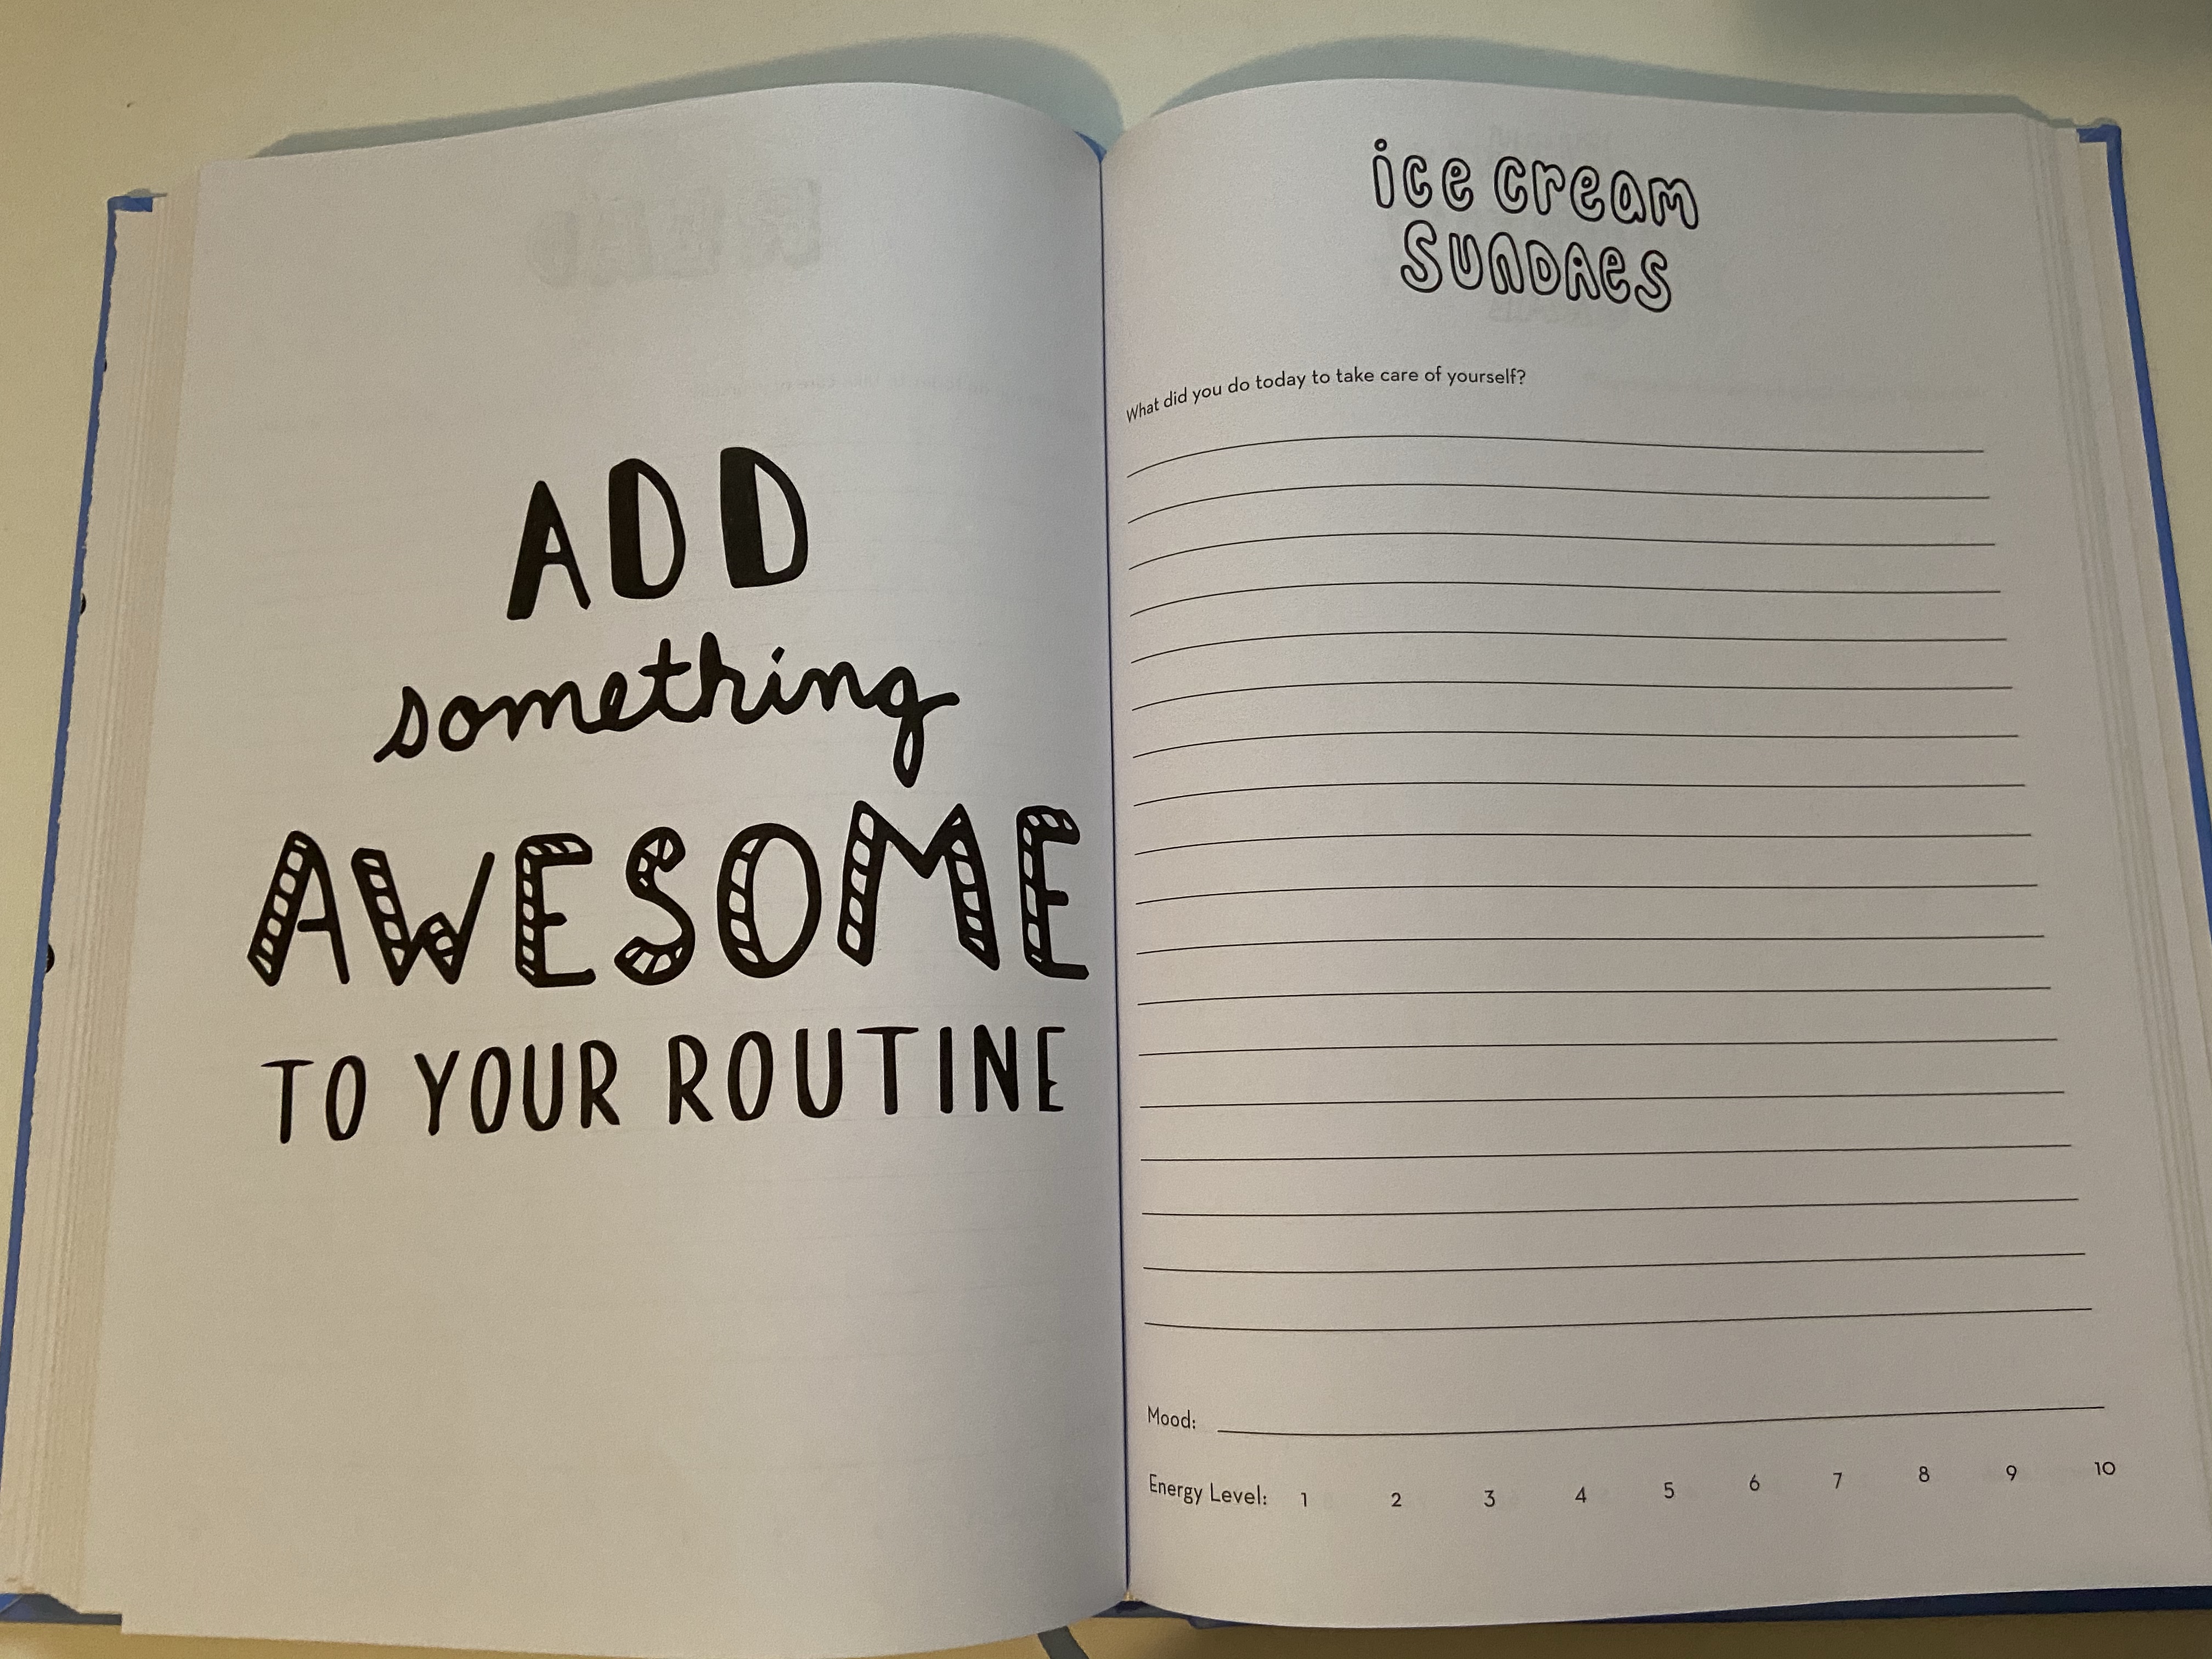 ADD
something
AWESOME
TO YOUR ROUTINE
ice cream
SUNDAES
What did you do today to take care of yourself?
Mood:
Energy Level: 1 2 3 4 5 6 7 8 9 10